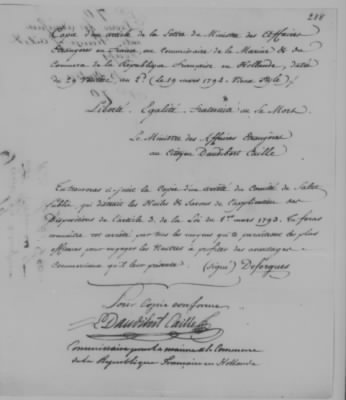 218
Copie d'un article de la Lettre du Ministre des Affaires
Etrangeres en France, au Commissaire de la Marine & du
Commerce de la République Française en Hollande, datée
du 29 Ventose, an 2e. (Le 19 mars 1794. Vieux Style)
Liberté, Egalité, Fraternité ou la Mort.
Le Ministre des Affaires Etrangères
au Citoyen Daudibert Caille
Tu trouveras ci-joint la Copie d'un arrêté du Comité de Salut
Public, qui les Huiles & Savons de l'application des
Dispositions de l'article 3. de la Loi du 1er mars 1793. Tu feras
connaître cet arrêté par tous les moyens que te paraîtront les plus
efficaces pour engager les Neutres à profiter des avantages
Commerciaux qu'il leur présente. (signé) Deforgues
Pour Copie conforme
Daudibert Caille
Commissaire pour la marine & le Commerce
de la République Française en Hollande